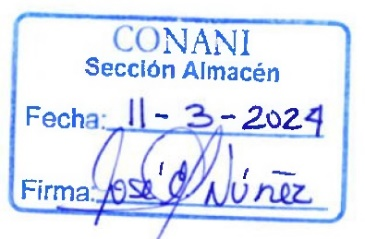 CONANI
Sección Almacén
Fecha: 11-3-2024
Firma: José Núñez